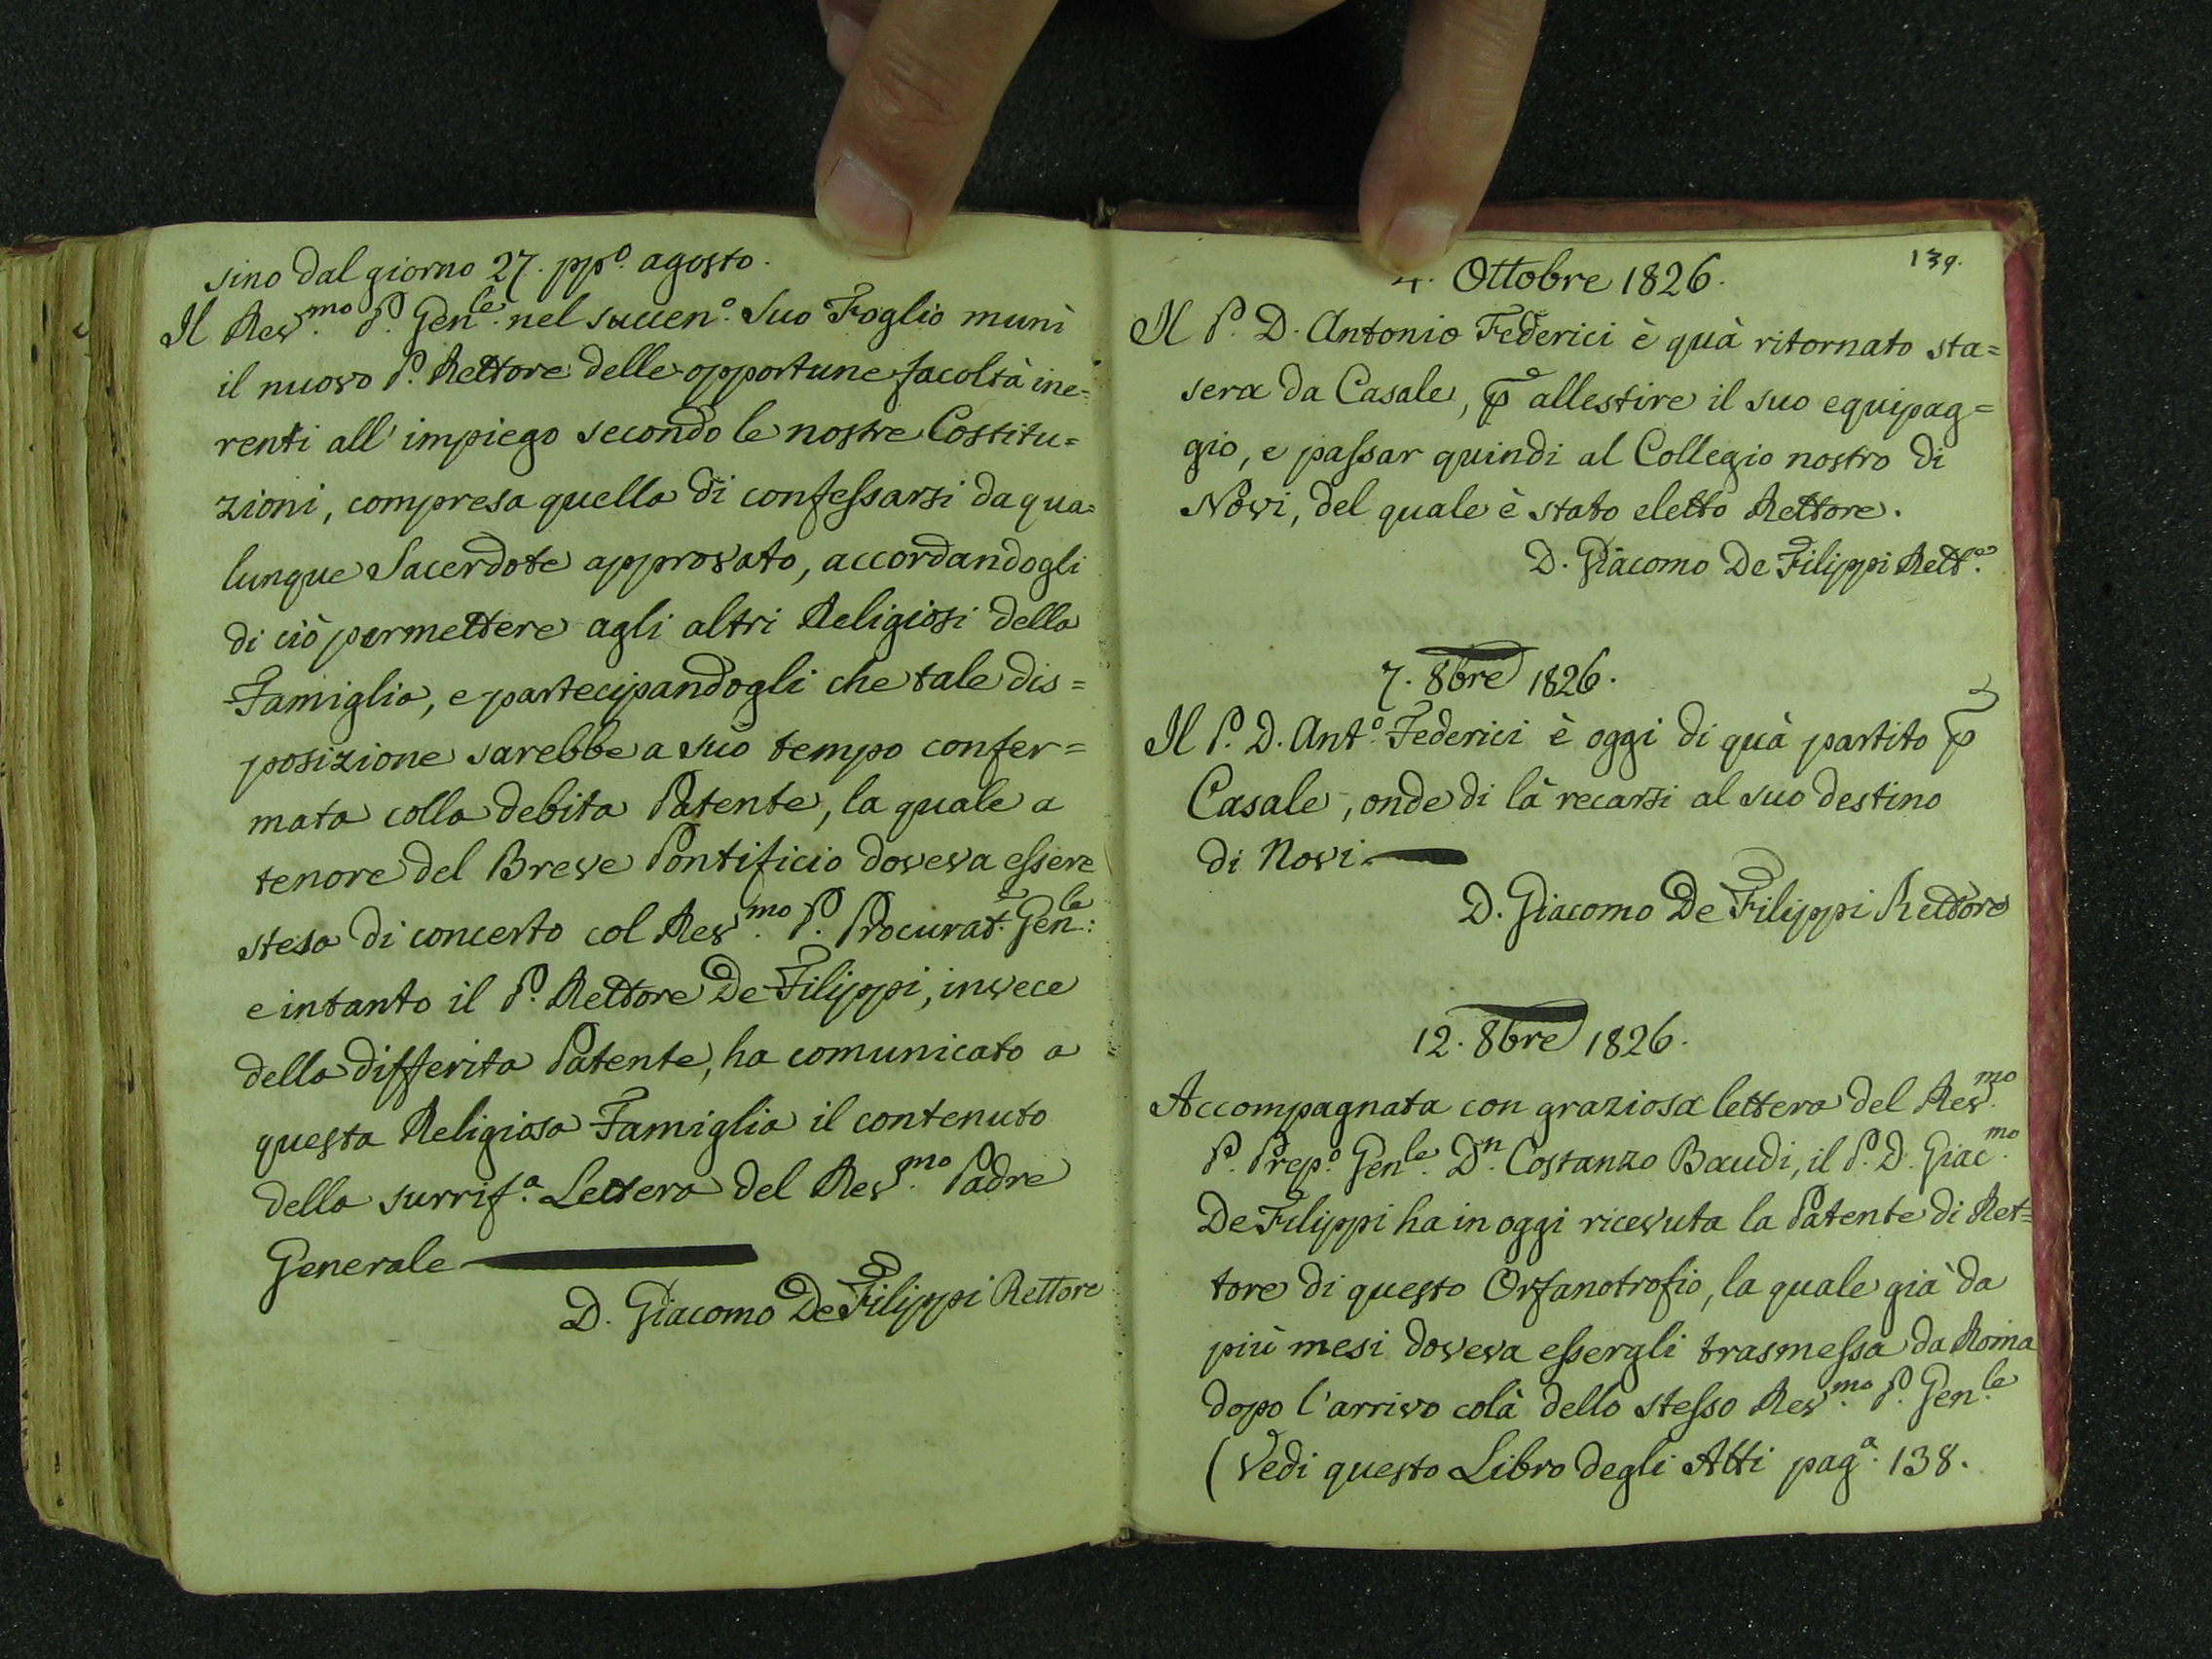 sino dal giorno 27. ppº. agosto.
Il Rev.mo P. Gen.le nel succen.º Suo Foglio munì
il nuovo P. Rettore delle opportune facoltà ine=
renti all' impiego secondo le nostre Costitu=
zioni, compresa quella di confessarsi da qua=
lunque Sacerdote approvato, accordandogli
di ciò permettere agli altri Religiosi della
Famiglia, e partecipandogli che tale dis=
posizione sarebbe a suo tempo confer=
mata colla debita Patente, la quale a
tenore del Breve Pontificio doveva essere
stesa di concerto col Rev.mo P. Procurat.e Gen.le:
e intanto il P. Rettore De Filippi, invece
della differita Patente, ha comunicato a
questa Religiosa Famiglia il contenuto
della surrif.a Lettera del Rev.mo Padre
Generale
D. Giacomo De Filippi Rettore
139.
4. Ottobre 1826.
Il P. D. Antonio Federici è quà ritornato sta=
sera da Casale, p allestire il suo equipag=
gio, e passar quindi al Collegio nostro di
Novi, del quale è stato eletto Rettore.
D. Giacomo De Filippi Rett.e
7. 8bre 1826.
Il P. D. Ant.º Federici è oggi di quà partito p
Casale, onde di là recarsi al suo destino
di Novi.
D. Giacomo De Filippi Rettore
12. 8bre 1826.
Accompagnata con graziosa lettera del Rev.mo
P. Prep.º Gen.le D.n Costanzo Baudi, il P. D. Giac.mo
De Filippi ha in oggi ricevuta la Patente di Ret=
tore di questo Orfanotrofio, la quale già da
più mesi doveva essergli trasmessa da Roma
dopo l'arrivo colà dello stesso Rev.mo P. Gen.le
(Vedi questo Libro degli Atti pag.a 138.